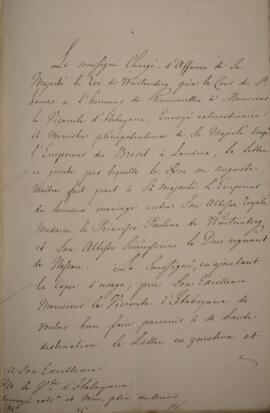 Le soussigné Chargé d'Affaires de Sa
Majesté le Roi de Wurtemberg près la Cour de St
James a l'honneur de transmettre à Monsieur
le Vicomte d'Itabayana, Envoyé extraordinaire
et Ministre plénipotentiaire de Sa Majesté
l'Empereur du Brésil à Londres, la Lettre
ci jointe par laquelle le Roi son auguste
Maitre fait part à Sa Majesté l'Empereur
du mariage entre Son Altesse Royale
Madame la Princesse Pauline de Wurtemberg
et Son Altesse Sérénissime le Duc régnant
de Nassau. Le Soussigné, en ajoutant
la Copie d'usage, prie Son Excellence
Monsieur le Vicomte d'Itabayana de
vouloir bien faire parvenir à sa haute
destination la Lettre en question et
A Son Excellence
M. le Vte d'Itabayana,
Envoyé extre et Min. plén. du Brésil